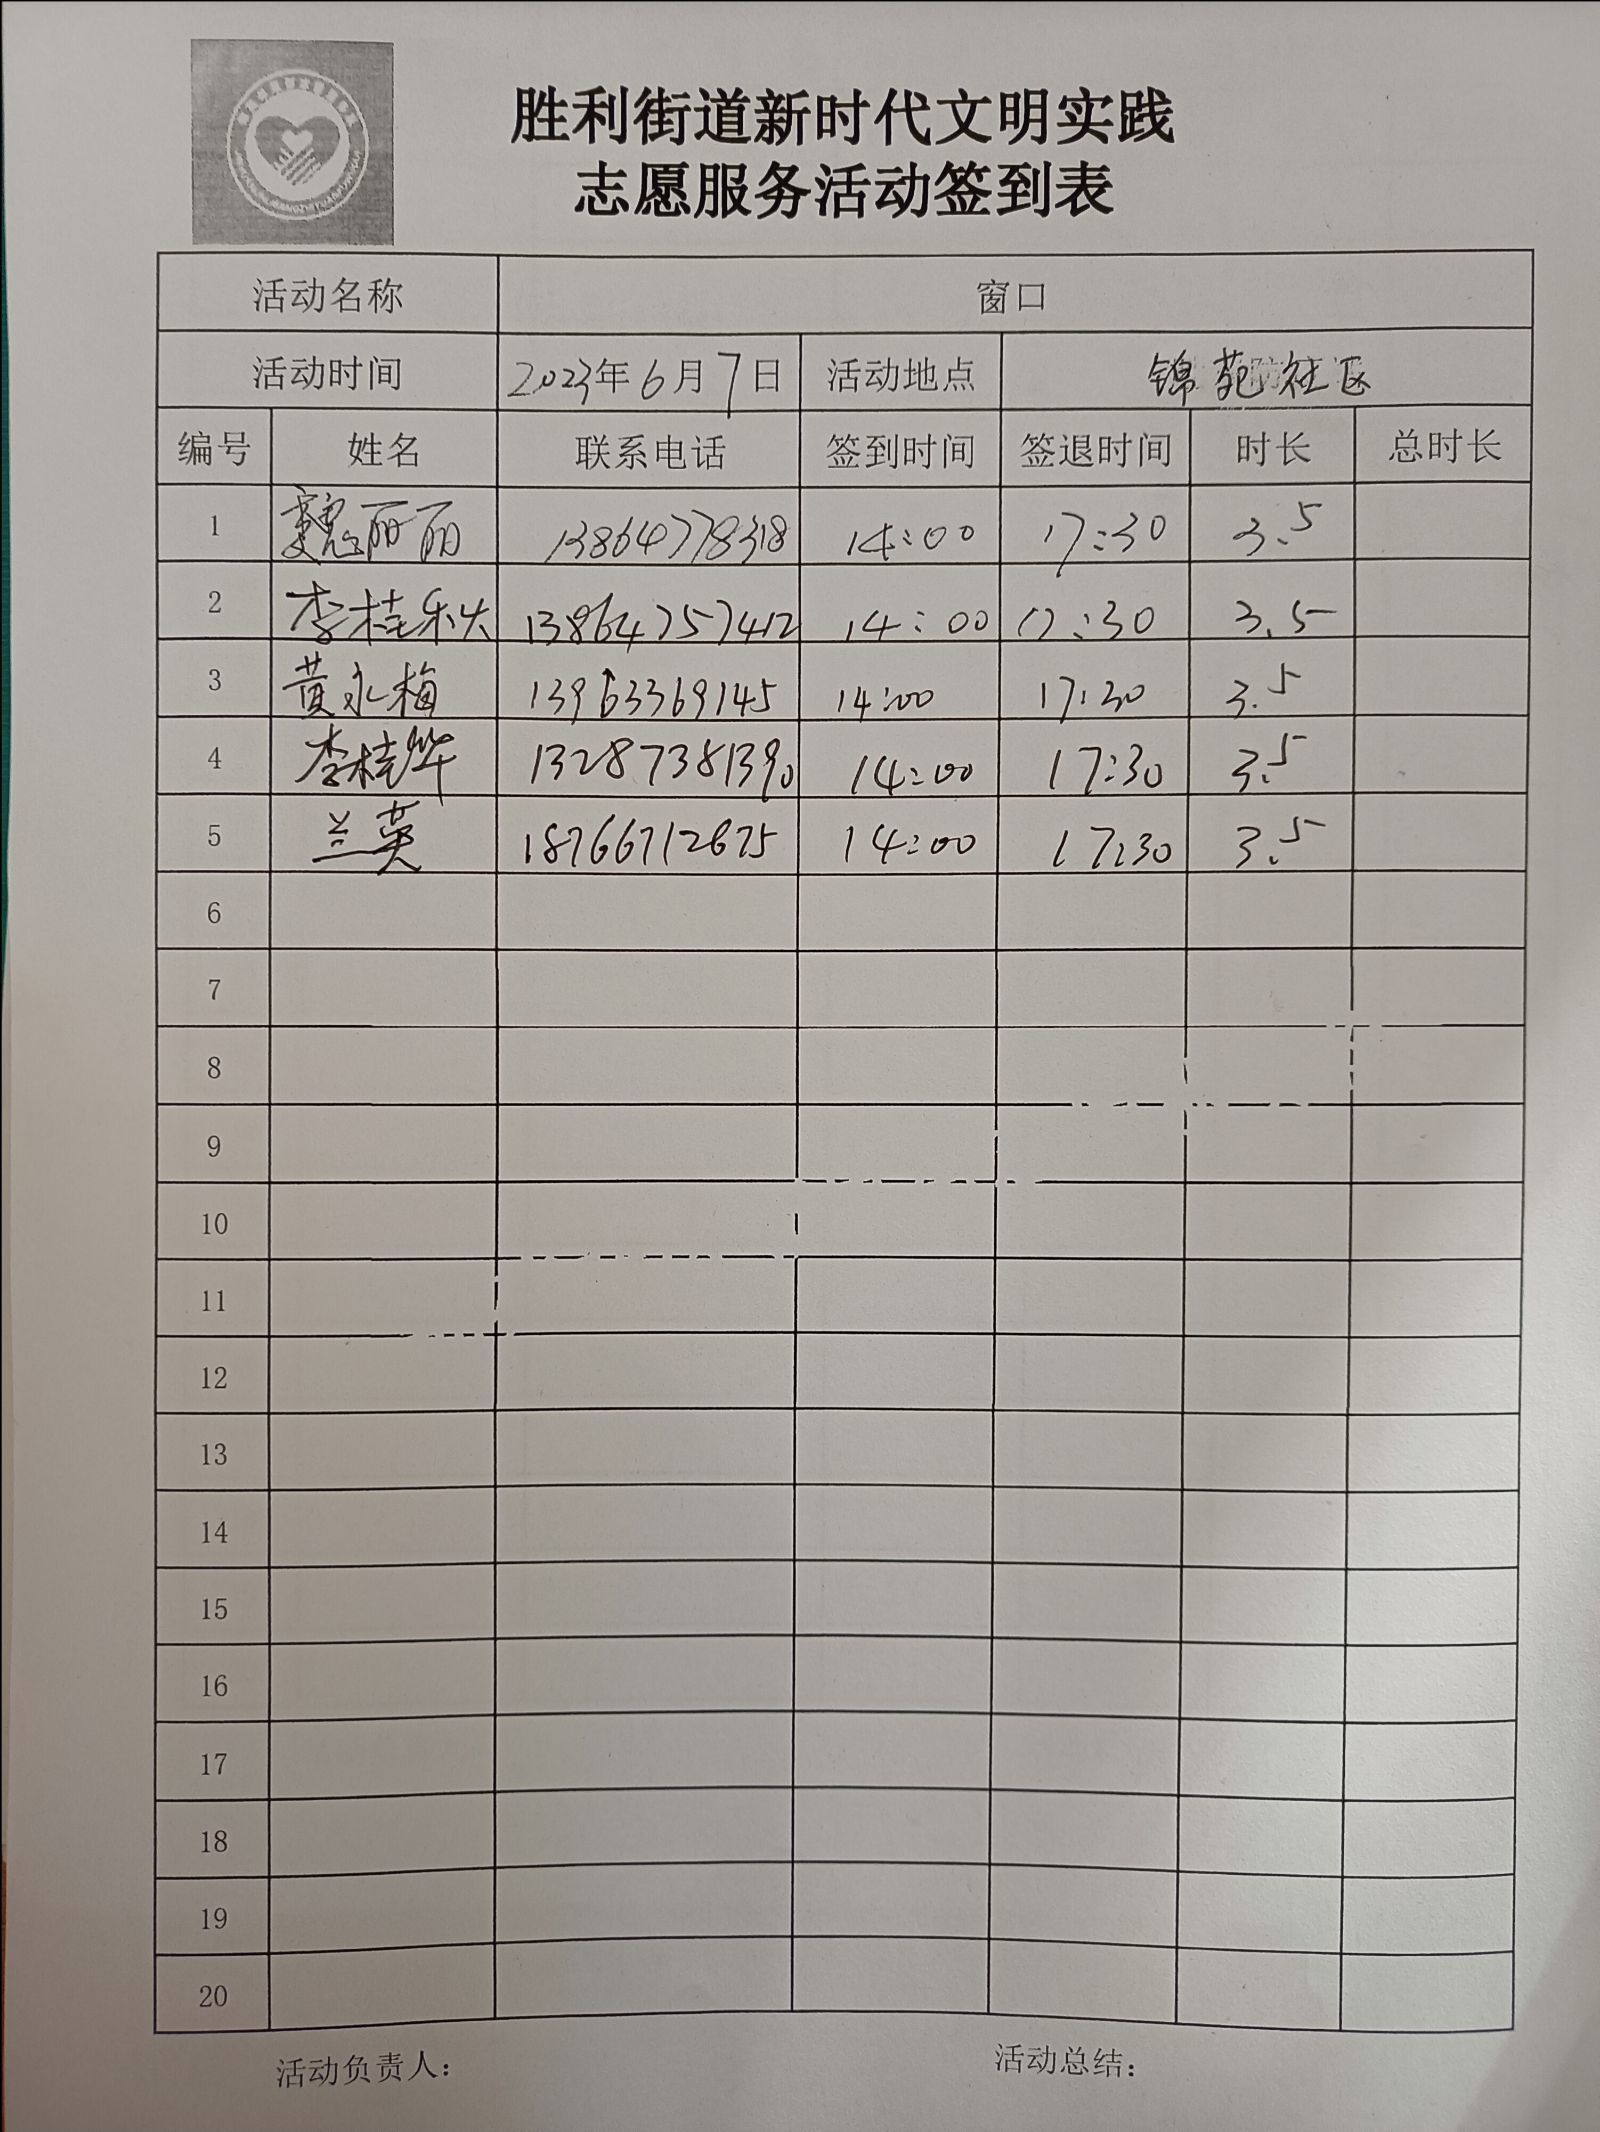 胜利街道新时代文明实践
志愿服务活动签到表
活动名称 窗口
活动时间 2023年6月7日 活动地点 锦苑社区
编号 姓名 联系电话 签到时间 签退时间 时长 总时长
1 魏丽丽 13864778318 14:00 17:30 3.5
2 李桂秋 13864757412 14:00 17:30 3.5
3 黄永梅 13963369145 14:00 17:30 3.5
4 李桂华 13287381390 14:00 17:30 3.5
5 兰英 18766712675 14:00 17:30 3.5
6
7
8
9
10
11
12
13
14
15
16
17
18
19
20
活动负责人： 活动总结：